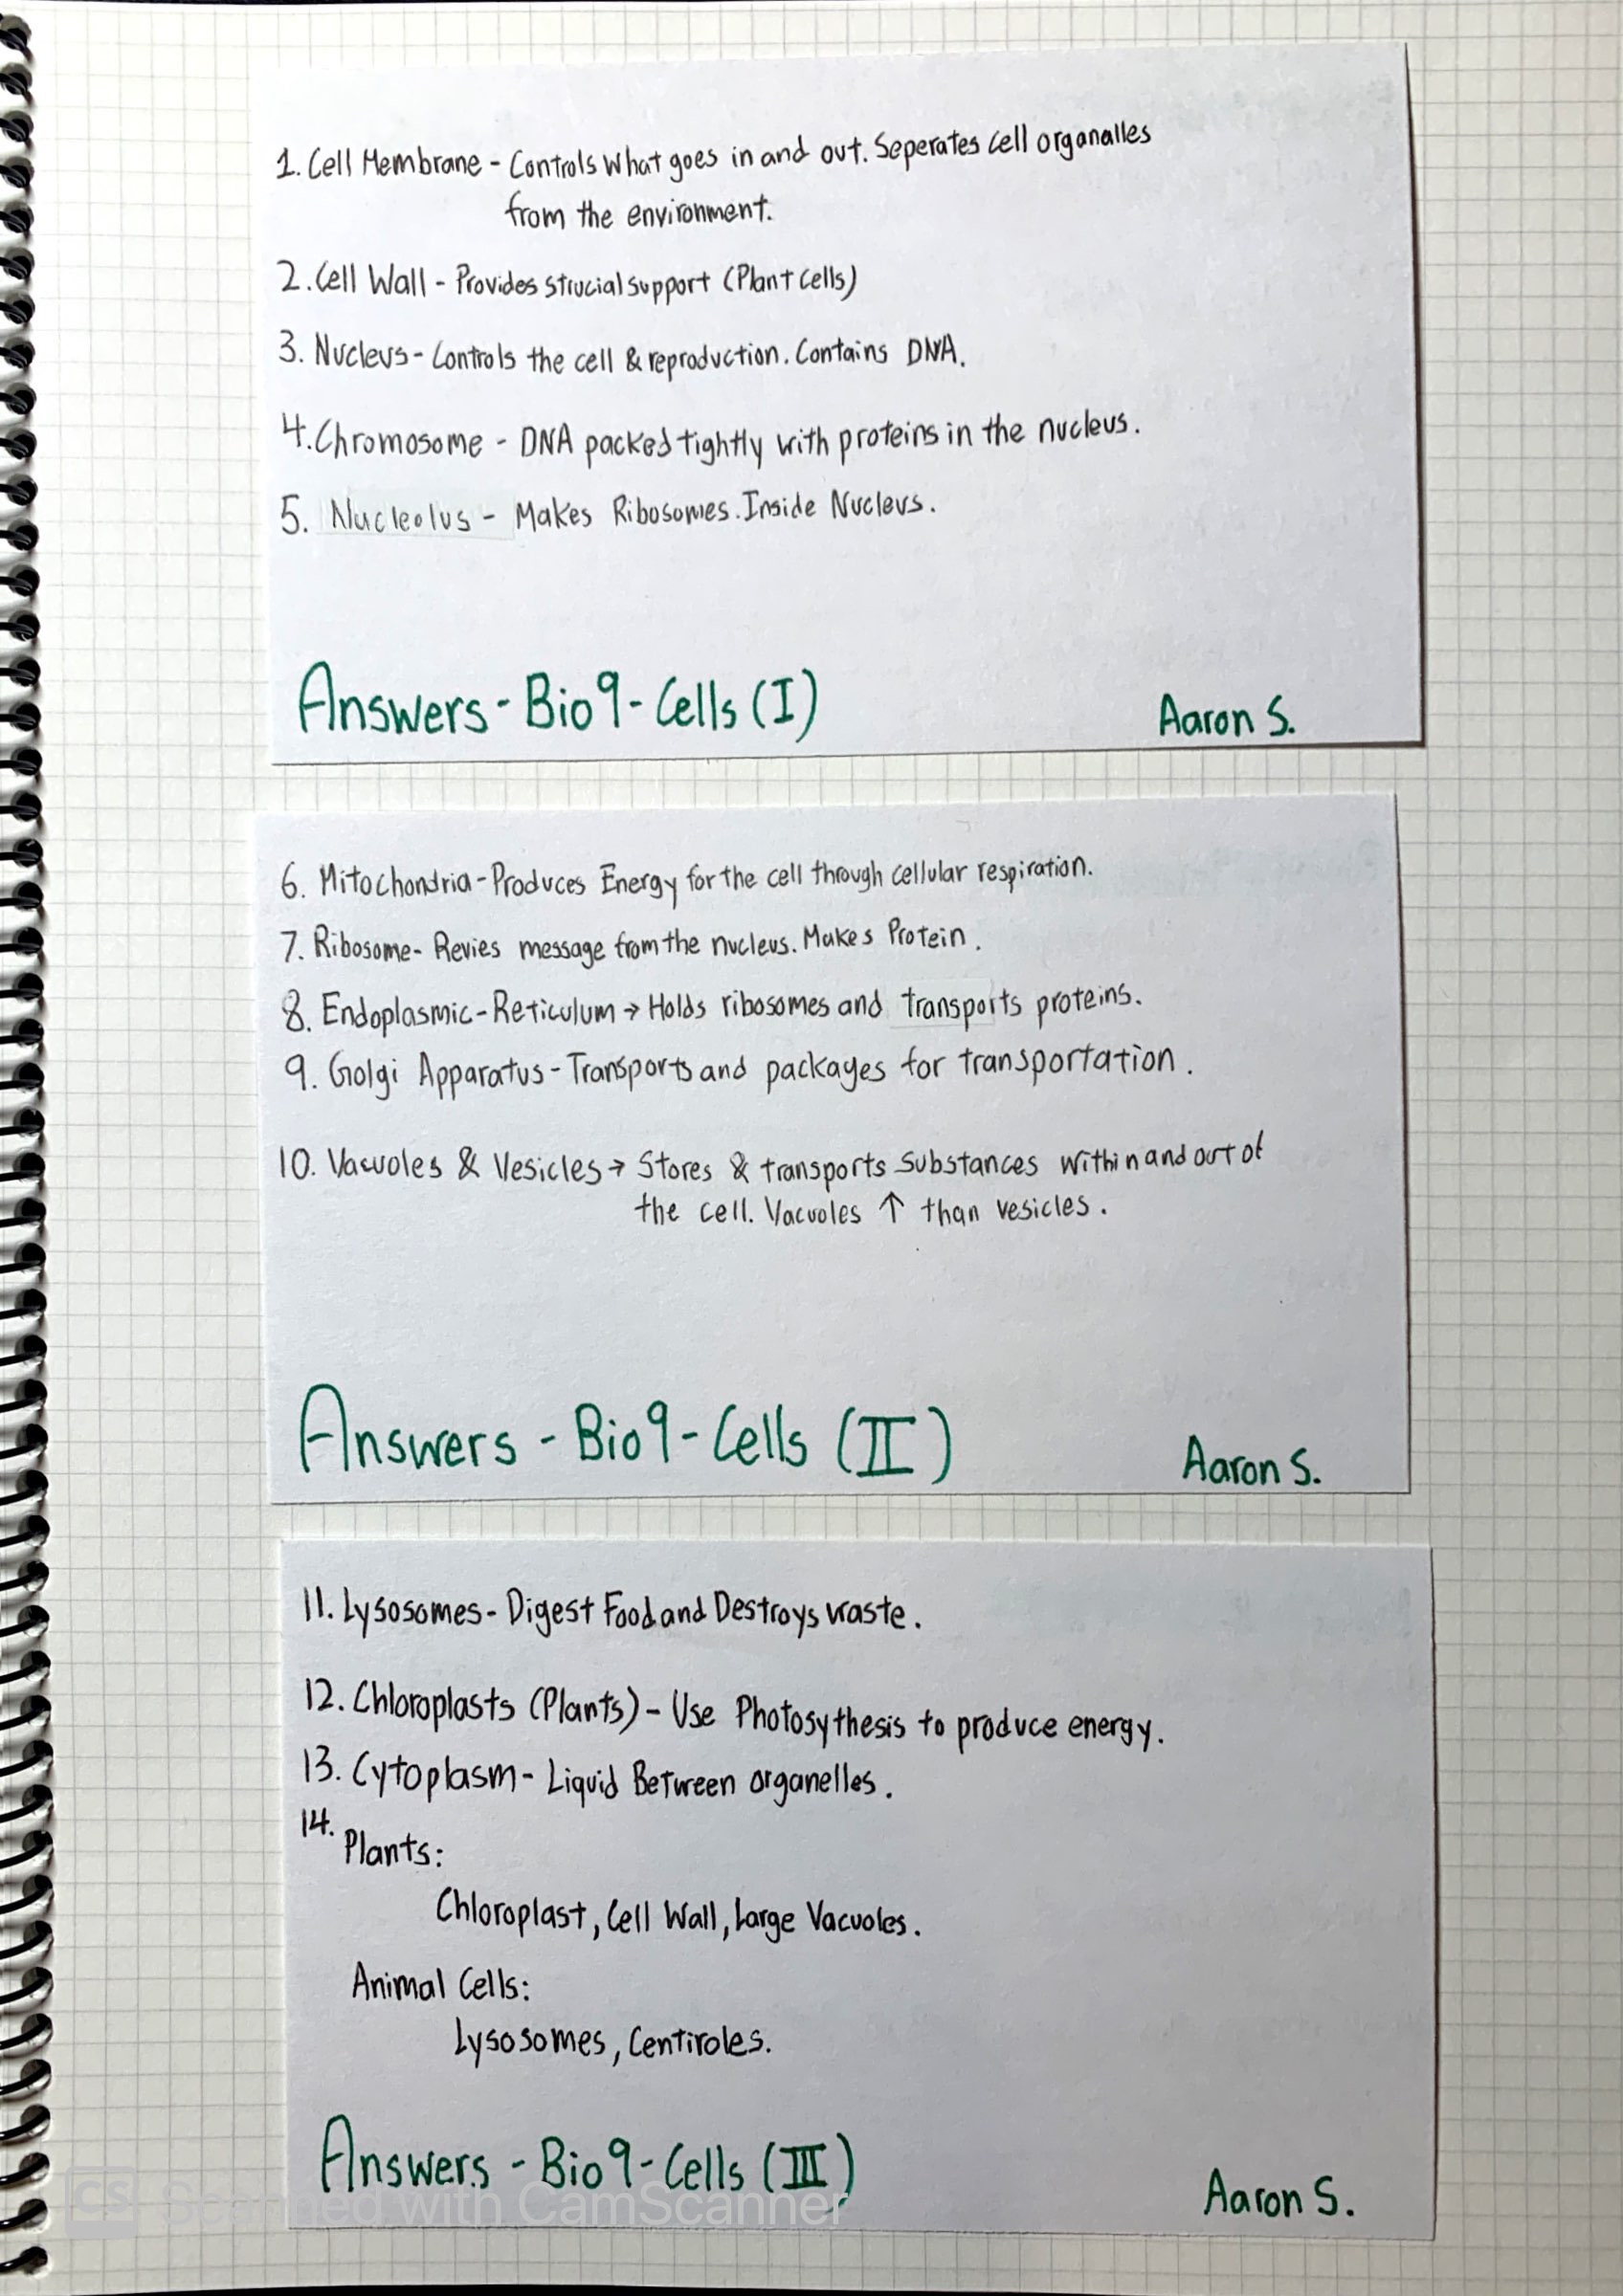 1. Cell Membrane - Controls what goes in and out. Seperates cell organalles
from the environment.
2. Cell Wall - Provides strucial support (Plant cells)
3. Nucleus - Controls the cell & reproduction. Contains DNA.
4. Chromosome - DNA packed tightly with proteins in the nucleus.
5. Nucleolus - Makes Ribosomes. Inside Nucleus.
Answers - Bio 9 - Cells (I)
Aaron S.
6. Mitochondria - Produces Energy for the cell through cellular respiration.
7. Ribosome - Revies message from the nucleus. Makes Protein.
8. Endoplasmic - Reticulum → Holds ribosomes and transports proteins.
9. Golgi Apparatus - Transports and packages for transportation.
10. Vacuoles & Vesicles → Stores & transports substances within and out of
the cell. Vacuoles ↑ than vesicles.
Answers - Bio 9 - Cells (II)
Aaron S.
11. Lysosomes - Digest Food and Destroys waste.
12. Chloroplasts (Plants) - Use Photosythesis to produce energy.
13. Cytoplasm - Liquid Between organelles.
14.
Plants:
Chloroplast, Cell Wall, Large Vacuoles.
Animal Cells:
Lysosomes, Centiroles.
Answers - Bio 9 - Cells (III)
Aaron S.
CS Scanned with CamScanner